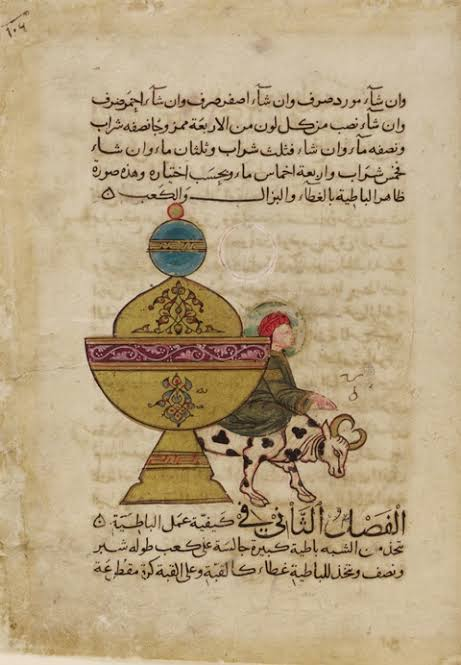 ١٠٤
وان شآء مورد صرف وان شآء اصفر صرف وان شآء احمر صرف
وان شآء نصب من كل لون من الاربعة ممزوجا نصفه شراب
ونصفه ماء وان شاء فثلث شراب وثلثان ماء وان شاء
فخمس شراب واربعة اخماس ماء وبحسب اختياره وهذه صورة
ظاهر الباطية بالغطاء والبزال والكعب
الفصل الثاني في كيفية عمل الباطية
تتخذ من الشبه باطية كبيرة جالسة على كعب طوله شبر
ونصف وتتخذ للباطية غطاء كالقبة وعلى القبة كرة مقطعة